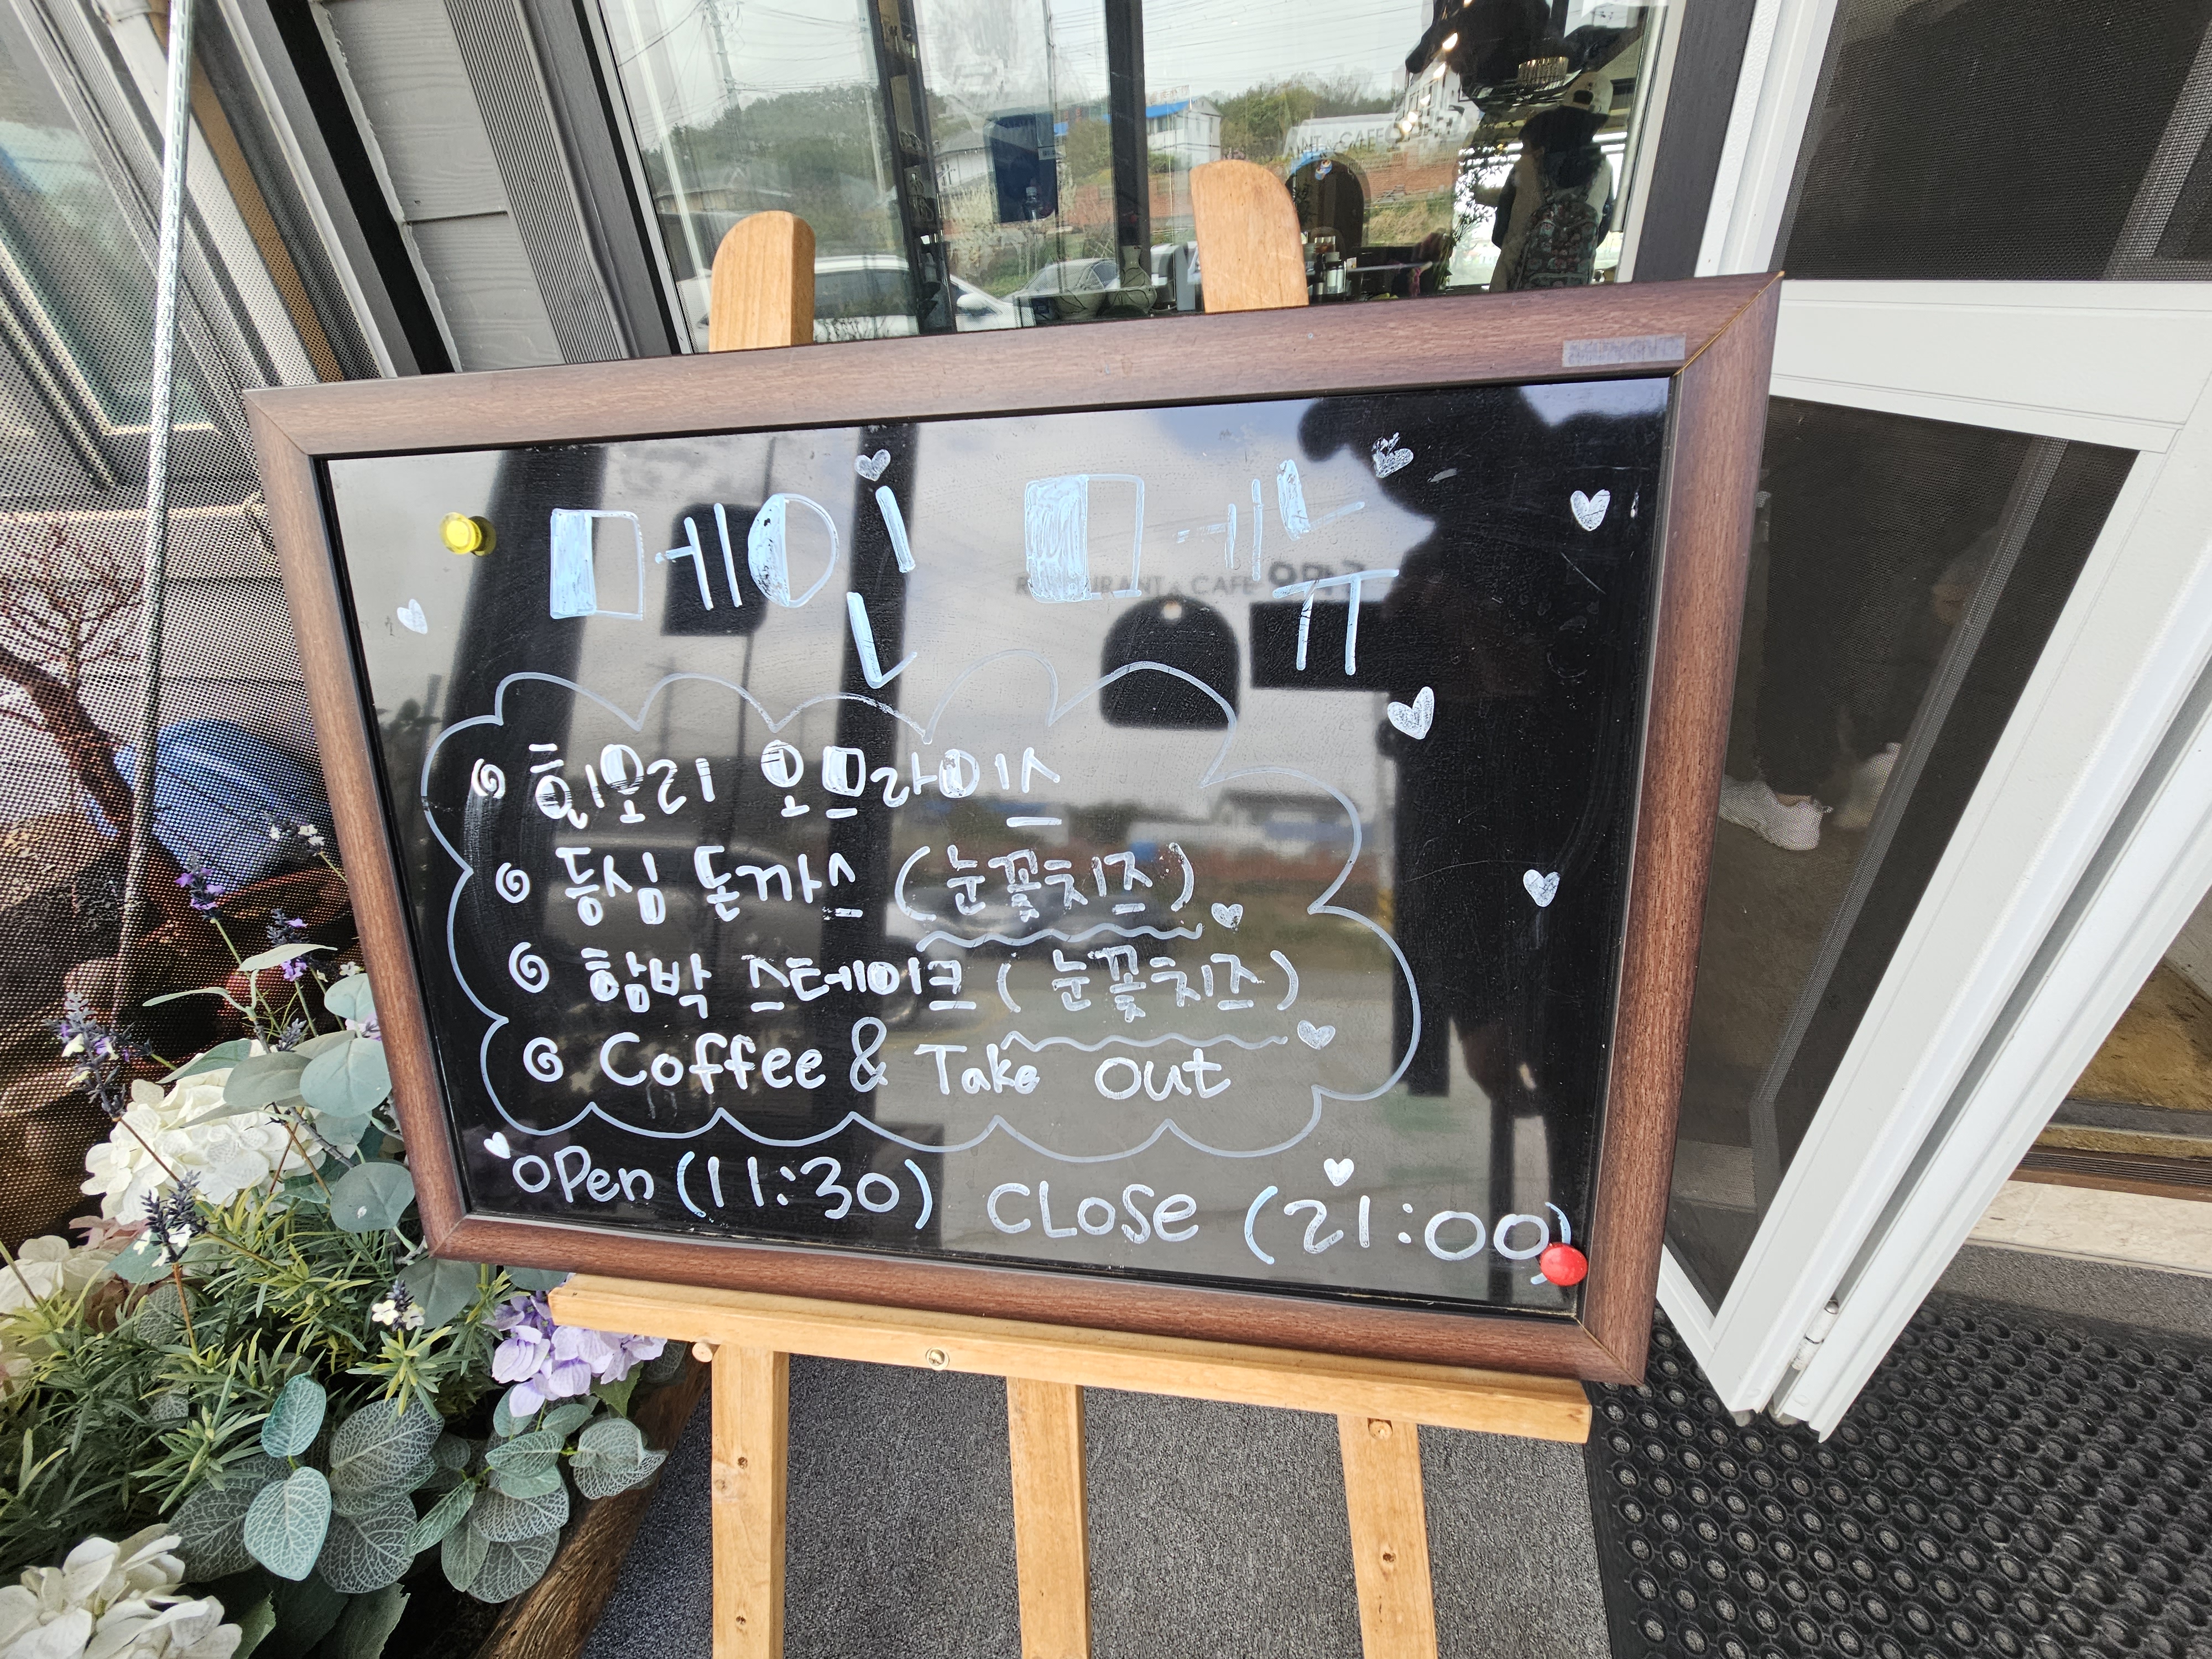 메인 메뉴
RESTAURANT & CAFE
회오리 오므라이스
등심 돈까스 (눈꽃치즈)
함박 스테이크 (눈꽃치즈)
Coffee & Take out
open (11:30) CLOSE (21:00)